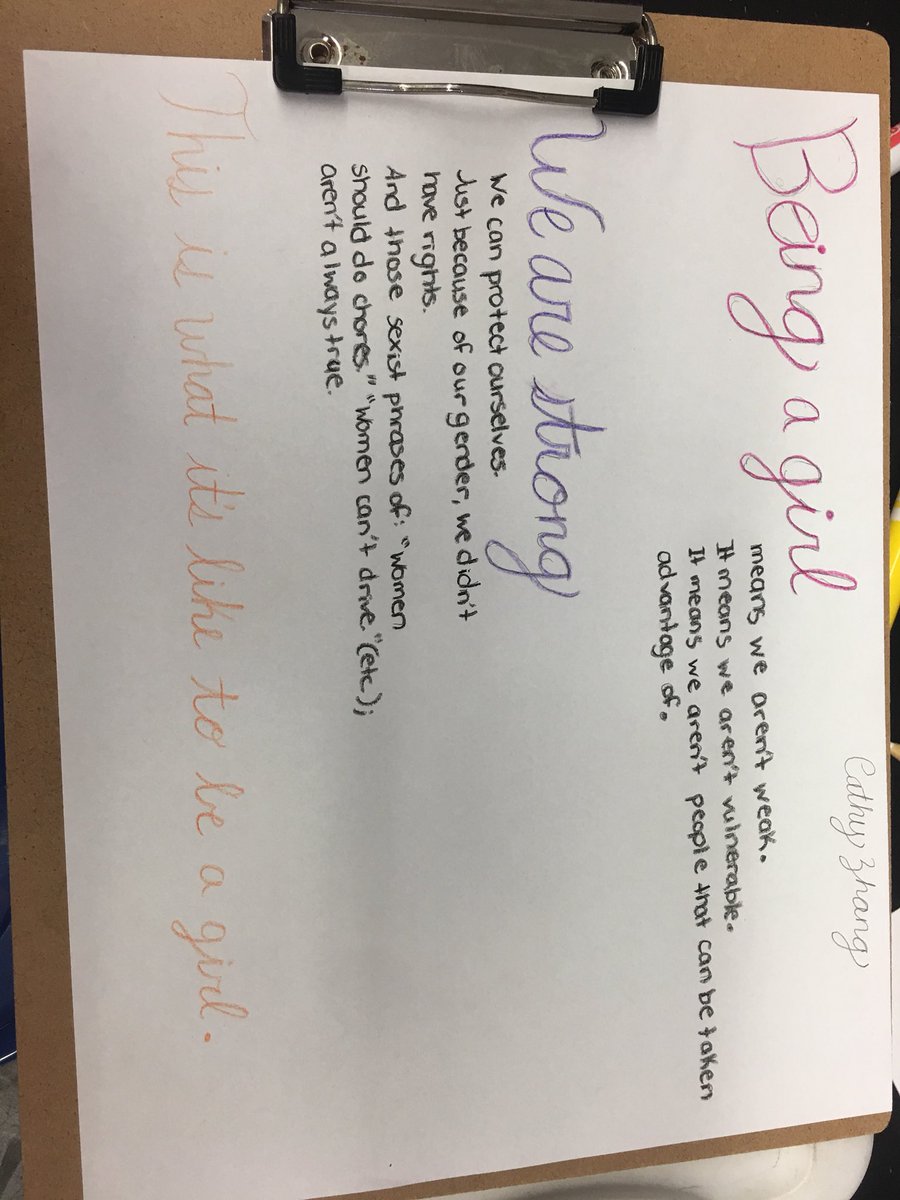 Cathy Zhang
Being a girl
means we aren't weak.
It means we aren't vulnerable.
It means we aren't people that can be taken
advantage of.
We are strong
We can protect ourselves.
Just because of our gender, we didn't
have rights.
And those sexist phrases of: "Women
should do chores." "Women can't drive." (etc.);
aren't always true.
This is what it's like to be a girl.